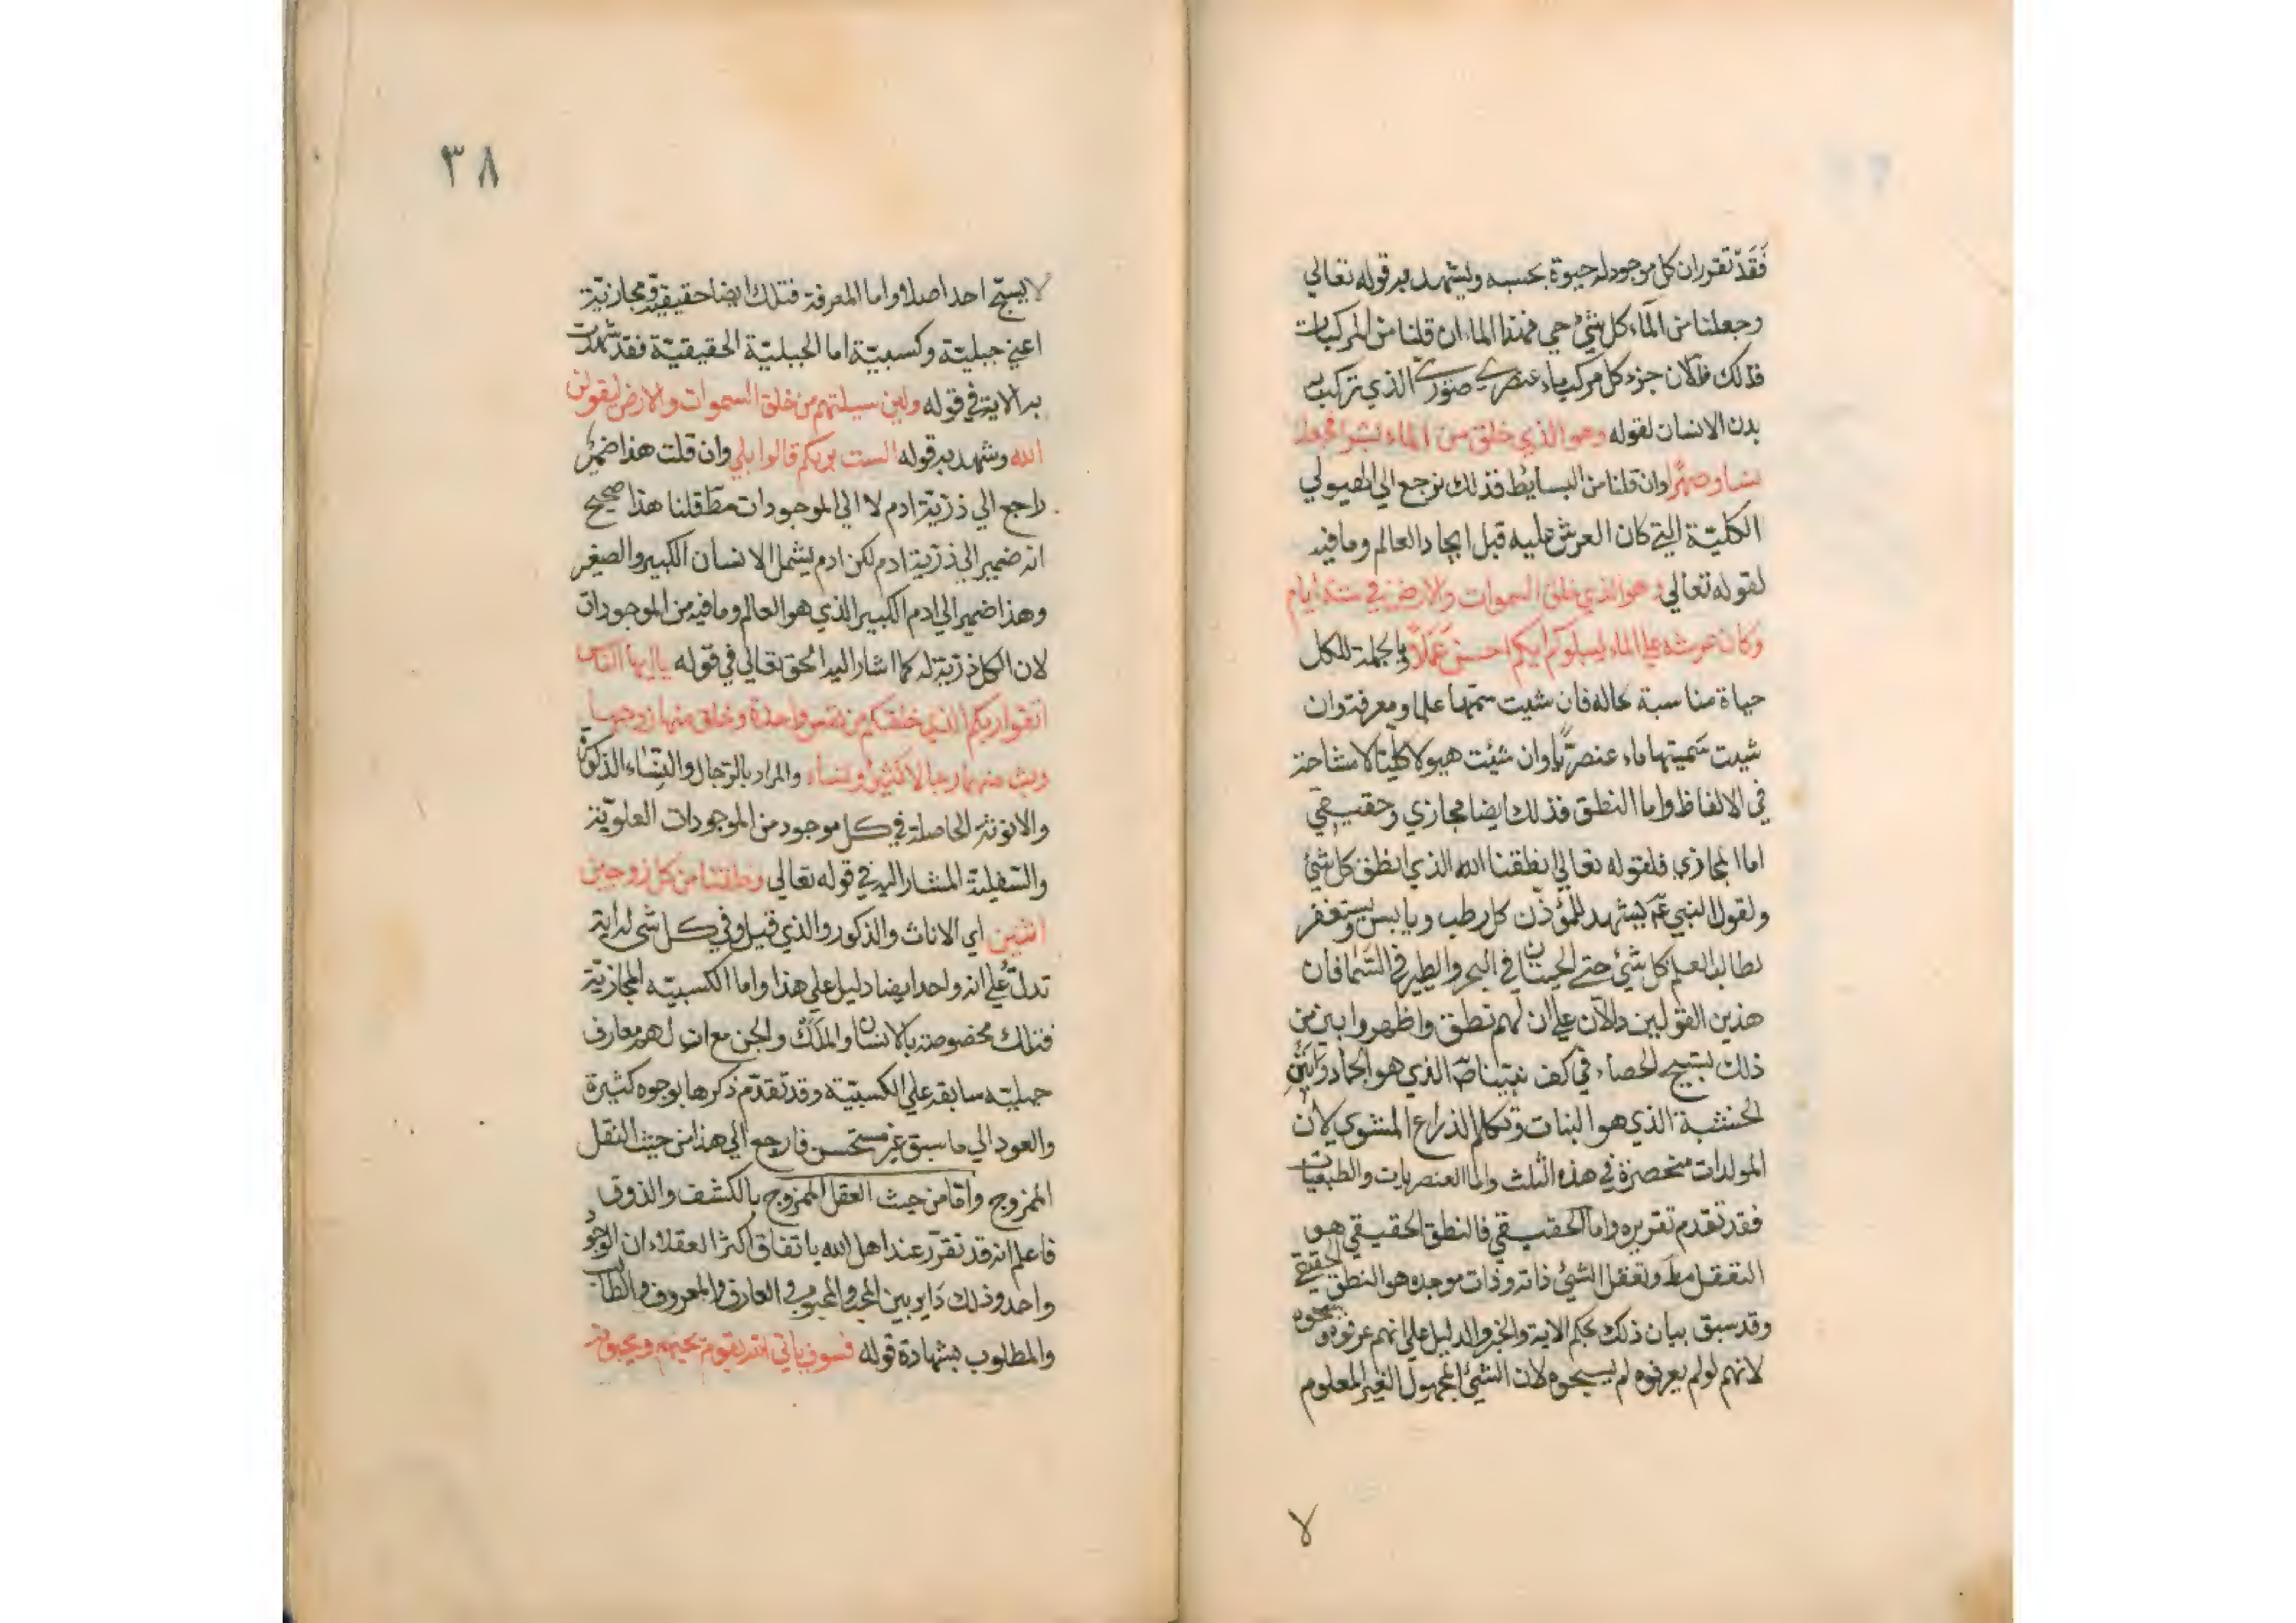 فَقَدْ تقرر ان كل موجود له حيوة بحسبه ويشهد به قوله تعالي
وجعلنا من الماء كل شئ حي فهذا الماء ان قلنا من المركبات
فذلك فلان جزء كل مركب ماء عنصري صوري الذي تركب به
بدن الانسان لقوله وهو الذي خلق من الماء بشرا فجعله
نسبا وصهرًا وان قلنا من البسائط فذلك نرجع الي الهيولي
الكليّة التي كان العرش عليه قبل ايجاد العالم وما فيه
لقوله تعالي وهو الذي خلق السموات والارض في ستة ايام
وكان عرشه علي الماء ليبلوكم ايكم احسن عَمَلًا وبالجملة للكل
حياة مناسبة بحاله فان شيت سمّها علما ومعرفة وان
شيت سَميتها ماء عنصريًّا وان شئت هيولا كليّة لا مشاحة
في الالفاظ واما النطق فذلك ايضا مجازي وحقيقي
اما المجازي فلقوله تعالي انطقنا الله الذي انطق كل شئ
ولقول النبي عم يشهد للمؤذن كل رطب ويابس ويستغفر
لطالب العلم كل شئ حتي الحيتان في البحر والطير في السّما فان
هذين القولين دالان علي ان لهم نطق واظهر وابين من
ذلك تسبيح الحصاء في كف نبيّنا صَ الذي هو الجماد وَانينِ
الخشبة الذي هو النبات وتكلم الذراع المشوي لان
المولدات منحصرة في هذه الثلث واما العنصريات والطبيعيات
فقد تقدم تقريره واما الحقيقي فالنطق الحقيقي هو
التعقل مط وتعقل الشئ ذاته وذات موجده هو النطق الحقيقي
وقد سبق بيان ذلك بحكم الاية والخبر والدليل علي انهم عرفوه وسبحوه
لانهم لو لم يعرفوه لم يسبحوه لان الشئ المجهول الغير المعلوم
لا
٣٨
لا يسبّح احد اصلا واما المعرفة فتلك ايضا حقيقية ومجازيّة
اعني جبليّة وكسبيّة اما الجبليّة الحقيقيّة فقد شهدت
به الاية في قوله ولين سيلتهم من خلق السموات والارض ليقولن
الله وشهد به قوله الست بربكم قالوا بلي وان قلت هذا ضمير
راجع الي ذريّة ادم لا الي الموجودات مطَ قلنا هذا صحيح
انه ضمير الي ذريّة ادم لكن ادم يشمل الانسان الكبير والصغير
وهذا ضمير الي ادم الكبير الذي هو العالم وما فيه من الموجودات
لان الكل ذريّة له كما اشار اليه الحق تعالي في قوله يا ايها الناس
اتقوا ربكم الذي خلقكم من نفس واحدة وخلق منها زوجها
وبث منهما رجالا كثيرا ونساء والمراد بالرّجال والنِّساء الذكورة
والانوثة الحاصلة في كل موجود من الموجودات العلويّة
والسّفلية المشار اليه في قوله تعالي وخلقنا من كل زوجين
اثنين اي الاناث والذكور والذي قيل وفي كل شئ له اية
تدلّ علي انه واحد ايضا دليل علي هذا واما الكسبيّه المجازيّة
فتلك مخصوصة بالانسان والمَلَك والجن مع ان لهم معارف
جبليّه سابقه علي الكسبيّة وقد تقدّم ذكرها بوجوه كثيرة
والعود الي ما سبق غير مستحسن فارجع الي هذا من حيث النقل
الممزوج وامّا من حيث العقل الممزوج بالكشف والذوق
فاعلم انه قد تقرّر عند اهل الله باتفاق اكثر العقلاء ان الوجود
واحد وذلك دَاير بين المحب والمحبوب والعارف والمعروف والطالب
والمطلوب بشهادة قوله فسوف ياتي الله بقوم يحبهم ويحبونه